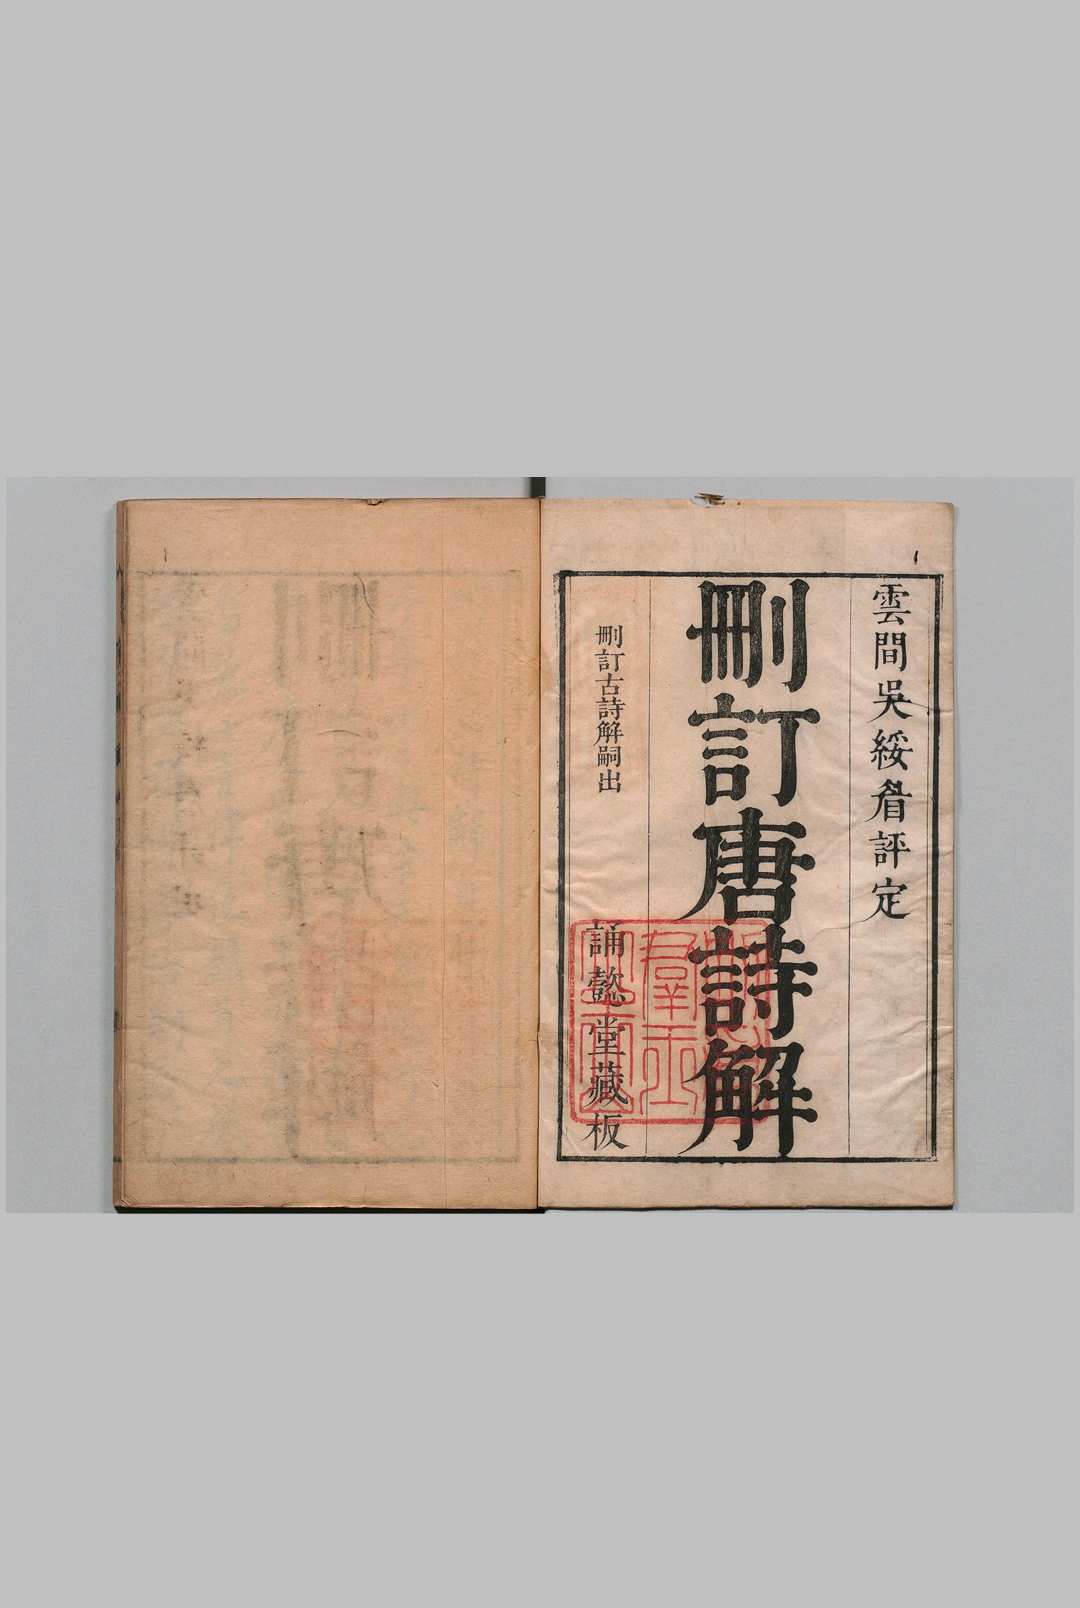 雲間吳綏眉評定
刪訂唐詩解
刪訂古詩解嗣出
誦懿堂藏板